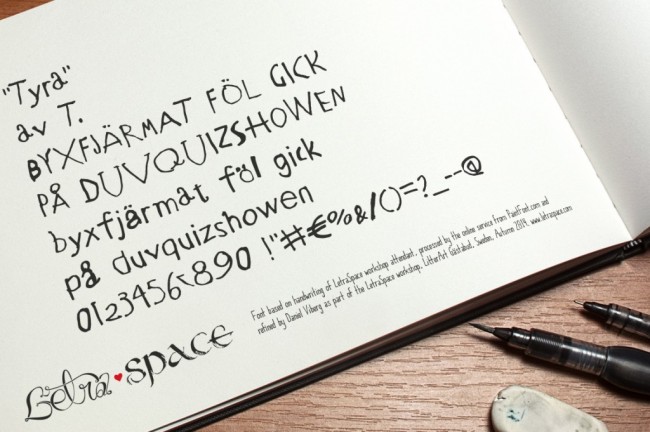 "Tyra"
av T.
BYXFJÄRMAT FÖL GICK
PÅ DUVQUIZSHOWEN
byxfjärmat föl gick
på duvquizshowen
0123456<890 !"#€%&/()=?_--@
Font based on handwriting of LetraSpace workshop attendant, processed by the online service from PaintFont.com and
refined by Daniel Viberg as part of the LetraSpace workshop, LitterArt Gästabud, Sweden, Autumn 2014. www.letraspace.com
Letra♥space